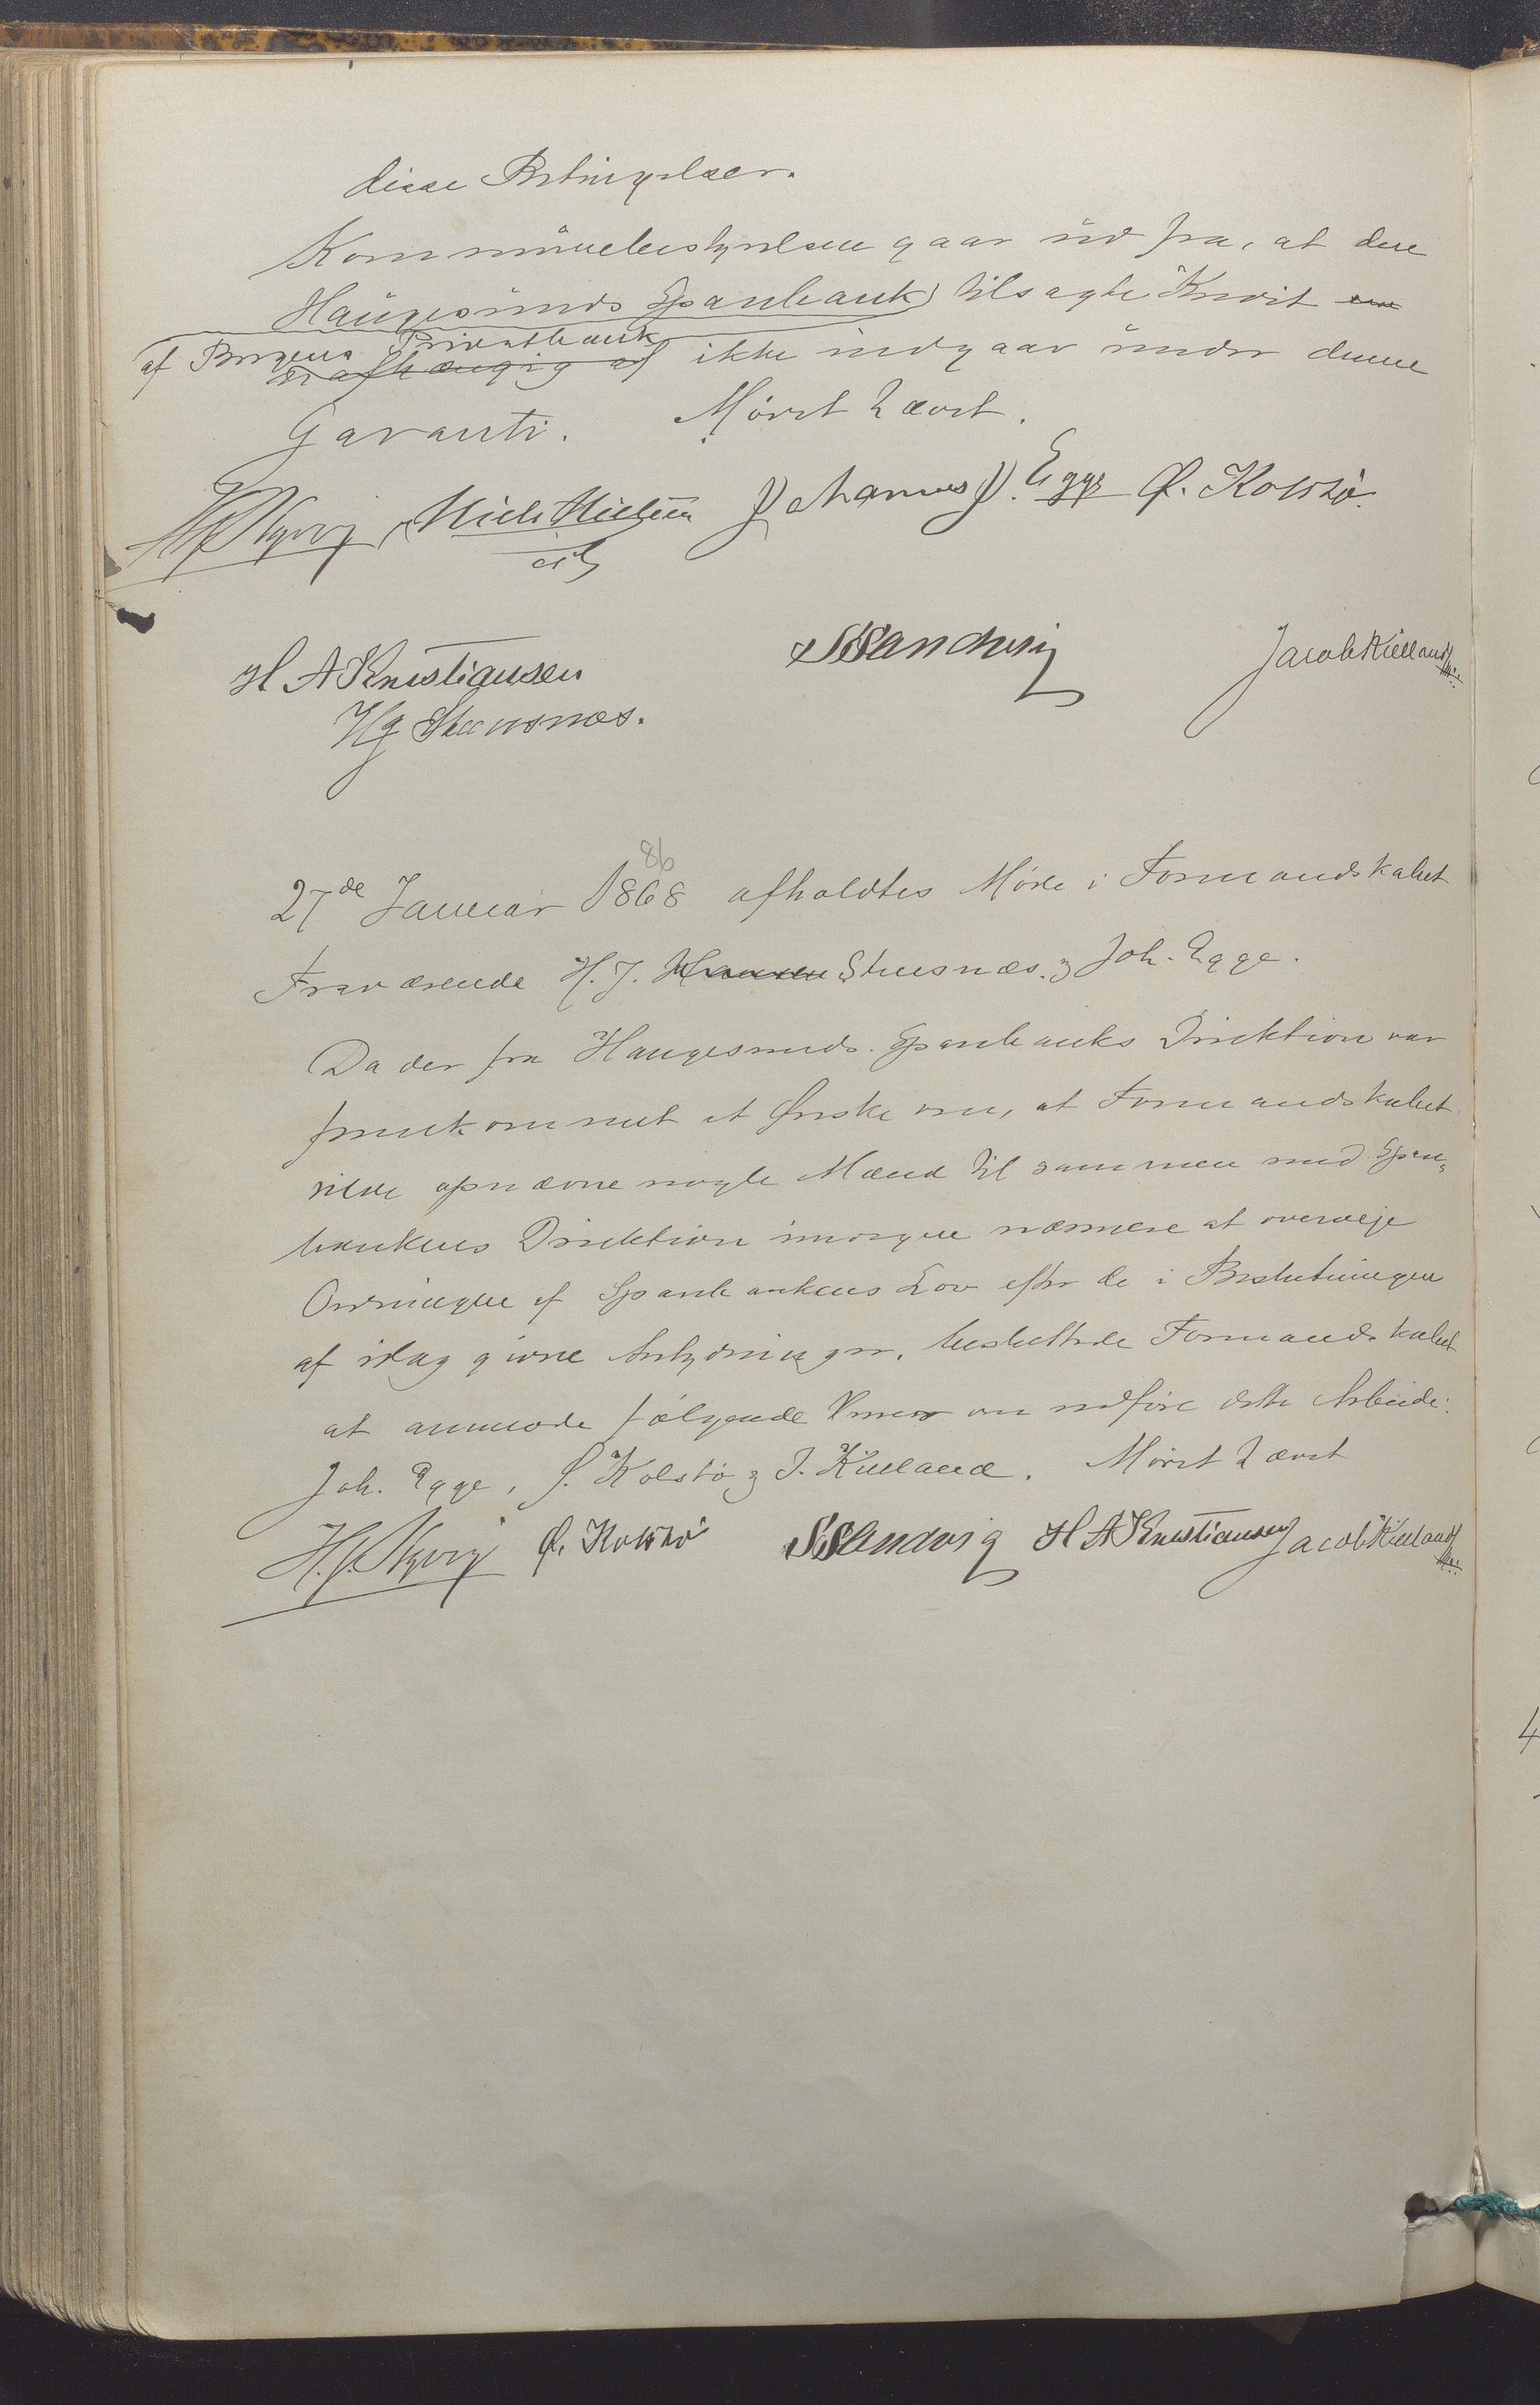 disse Betingelser.
Kommünebestyrelsen gaar üd fra, at den
Haügesünds Sparebank tilsagte Kredit
af Bergens Privatbank
er afhængig af ikke indgaar ünder denne
Garanti. Mödet hævet.
Johannes J. Egge Ø. Kolstö
H A Kristiansen S S Sandvig Jacob Kielland
Hg Stensnæs.
86
27de Januar 1868 afholdtes Möde i Formandskabet
Fraværende H. J. Hansen Stensnæs. og Joh. Egge.
Da der fra Haugesunds Sparebanks Direktion var
fremkommet et Ønske om, at Formandskabet
vilde opnævne nogle Mænd til sammen med Spare-
bankens Direktion imorgen nærmere at overveje
Ordningen af Sparebankens Lov efter de i Beslutningen
af idag givne Antydninger, besluttede Formandskabet
at anmode fölgende Herrer om udföre dette Arbeide:
Joh. Egge, Ø. Kolstö og J. Kielland. Mödet hævet
Ø. Kolstö S S Sandvig H A Kristiansen Jacob Kielland